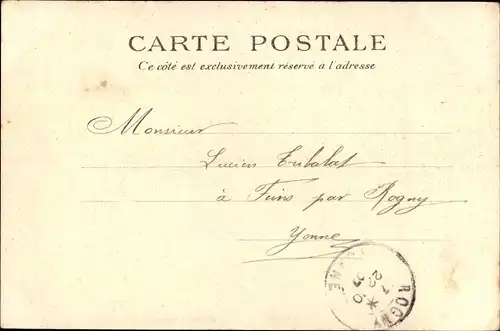 CARTE POSTALE
Ce côté est exclusivement réservé à l'adresse
Monsieur
Lucien Tribalat
à Feins par Rogny
Yonne
ROGNY